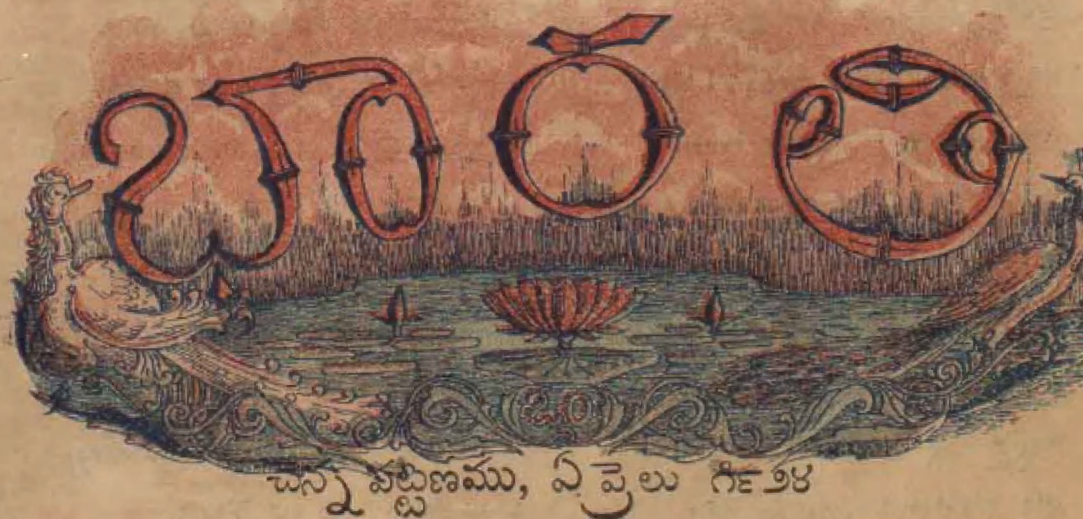 భారతి
ఓం
చెన్న పట్టణము, ఏ ప్రెలు ౧౯౨౪